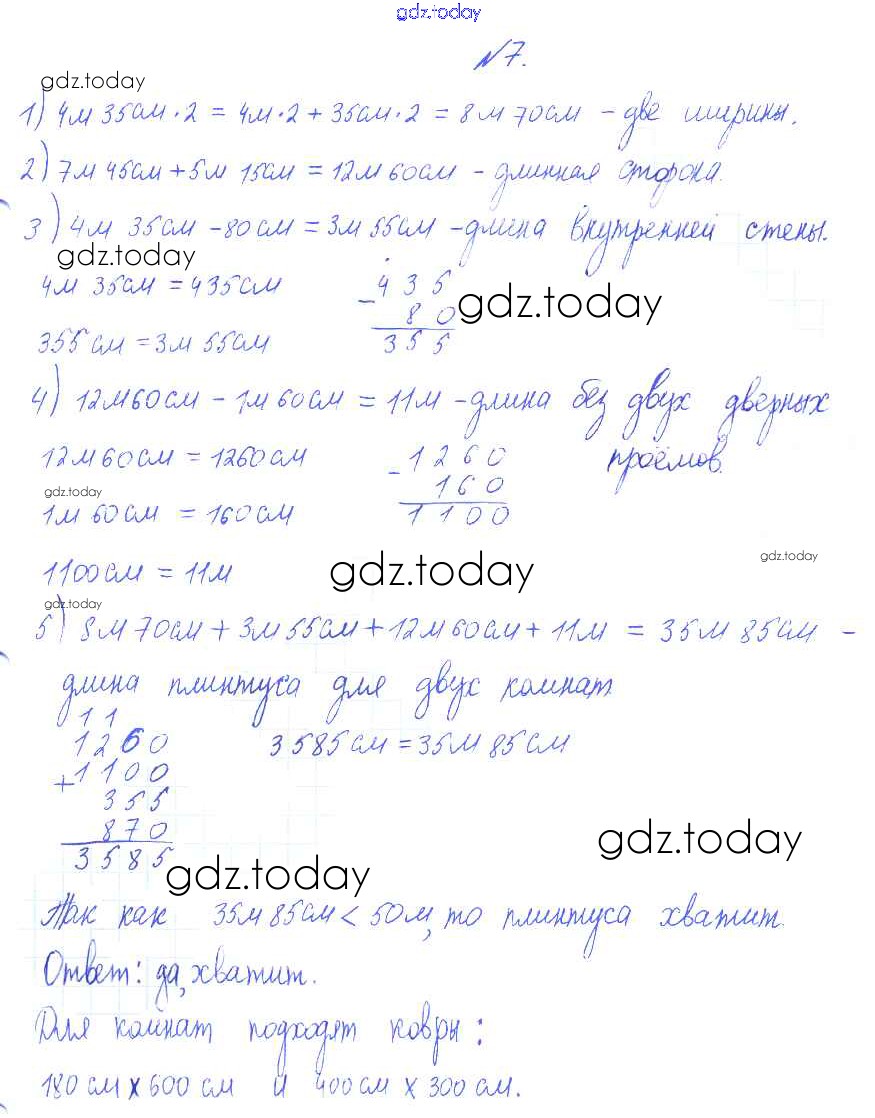 gdz.today
№7.
gdz.today
1) 4м 35см·2 = 4м·2 + 35см·2 = 8м 70см - две ширины.
2) 7м 45см + 5м 15см = 12м 60см - длинная сторона.
3) 4м 35см - 80см = 3м 55см - длина внутренней стены.
gdz.today
4м 35см = 435см
-435
80
gdz.today
355
355см = 3м 55см
4) 12м 60см - 1м 60см = 11м - длина без двух дверных
проёмов.
12м 60см = 1260см
-1260
160
1100
gdz.today
1м 60см = 160см
gdz.today
1100см = 11м
gdz.today
gdz.today
5) 8м 70см + 3м 55см + 12м 60см + 11м = 35м 85см -
длина плинтуса для двух комнат
11
1260
+1100
355
870
3585
3585см = 35м 85см
gdz.today
gdz.today
Так как 35м 85см < 50м, то плинтуса хватит.
Ответ: да, хватит.
Для комнат подходят ковры:
180см х 600см и 400см х 300см.